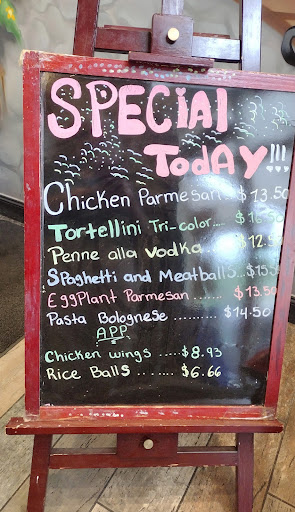 SPECIAl
TodAY!!!
Chicken Parmesan..$13.50
Tortellini Tri-color....$16.50
Penne alla vodka..$12.50
SPaghetti and MeatballS...$15.50
EggPlant Parmesan .......$13.50
Pasta Bolognese ..........$14.50
APP
Chicken wings .....$8.93
Rice BallS .. .....$6.66